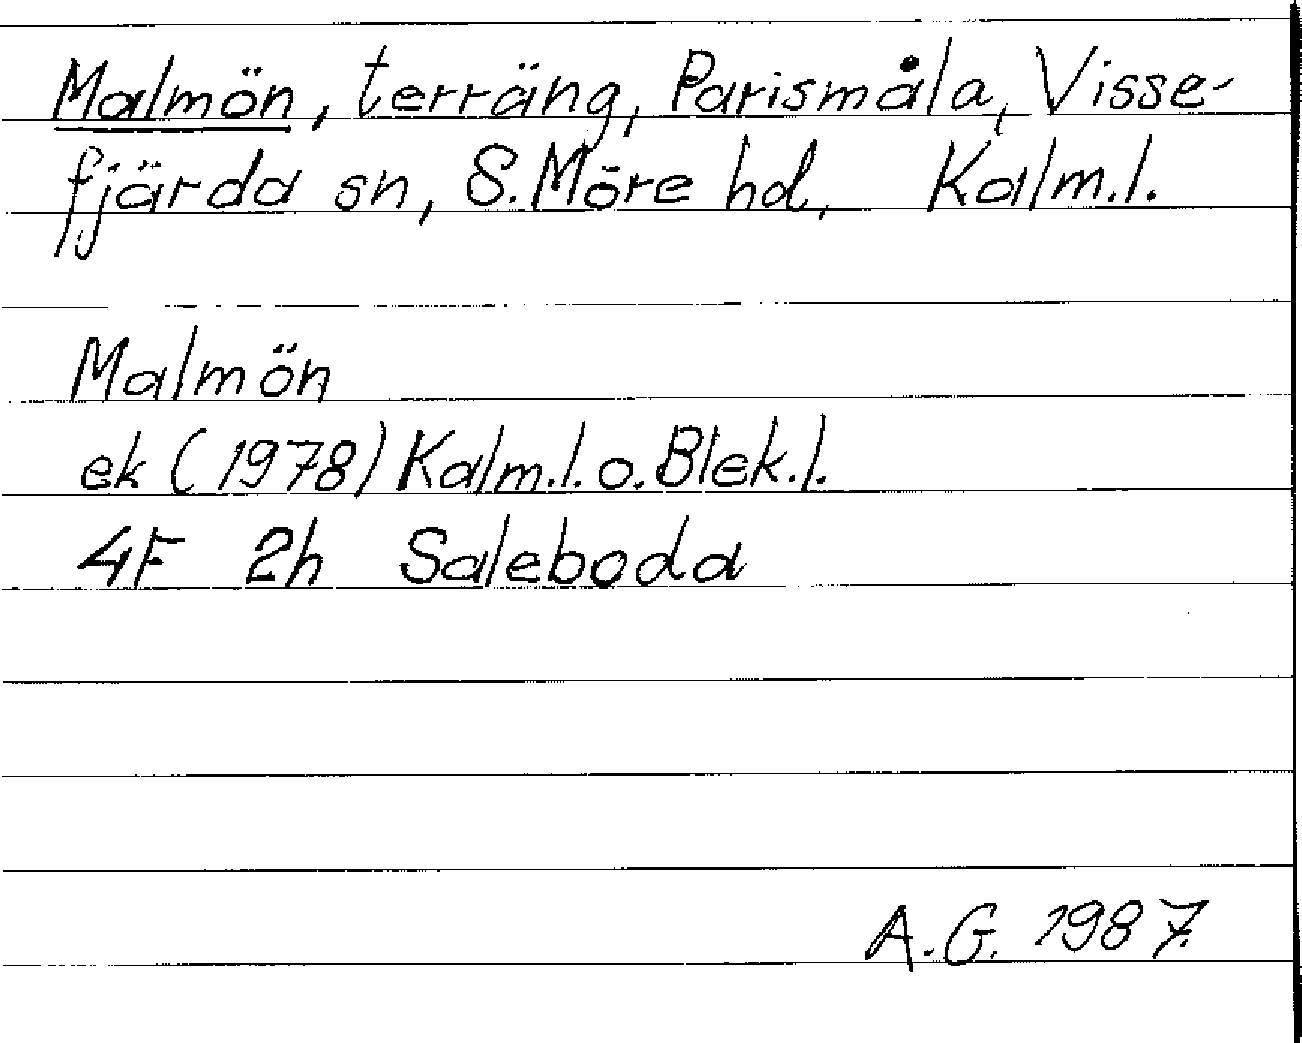 Malmön, terräng, Parismåla, Visse-
fjärda sn, S. Möre hd, Kalm.l.
Malmön
ek (1978) Kalm.l. o. Blek.l.
4F 2h Saleboda
A.G. 1987.